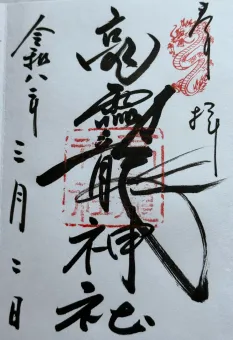 奉拝
高龗龍神社
令和八年
三月二日